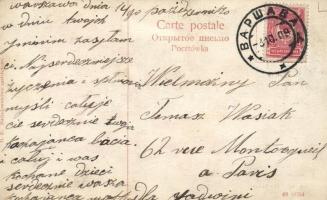 Warszawa dnia 14/10 październik
w dniu twoich
imienin zasyłam
ci Najserdeczniejsze
życzenia i
myśli całuję
cię serdecznie twoja
kochająca babcia
i całuję i was
kochane dzieci
serdecznie wasza
kochająca
Carte postale
Открытое письмо
Pocztówka
ВАРШАВА
Wielmożny Pan
Tomasz Wasiak
62 rue Montorgueil
a Paris
dla Jadwini